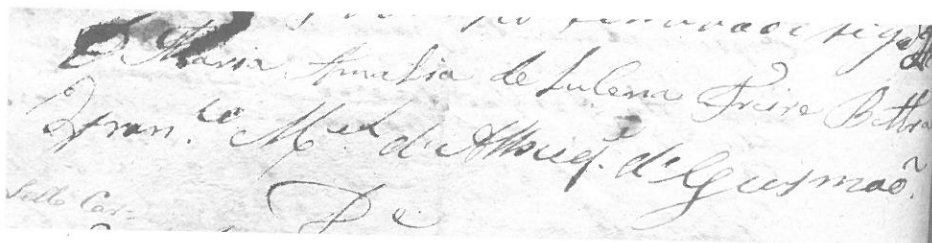 D. Maria Amalia de Lulena Freire Beltra
Fran.co M.el d'Albuq. de Gusmaõ.
Sello Car.
De